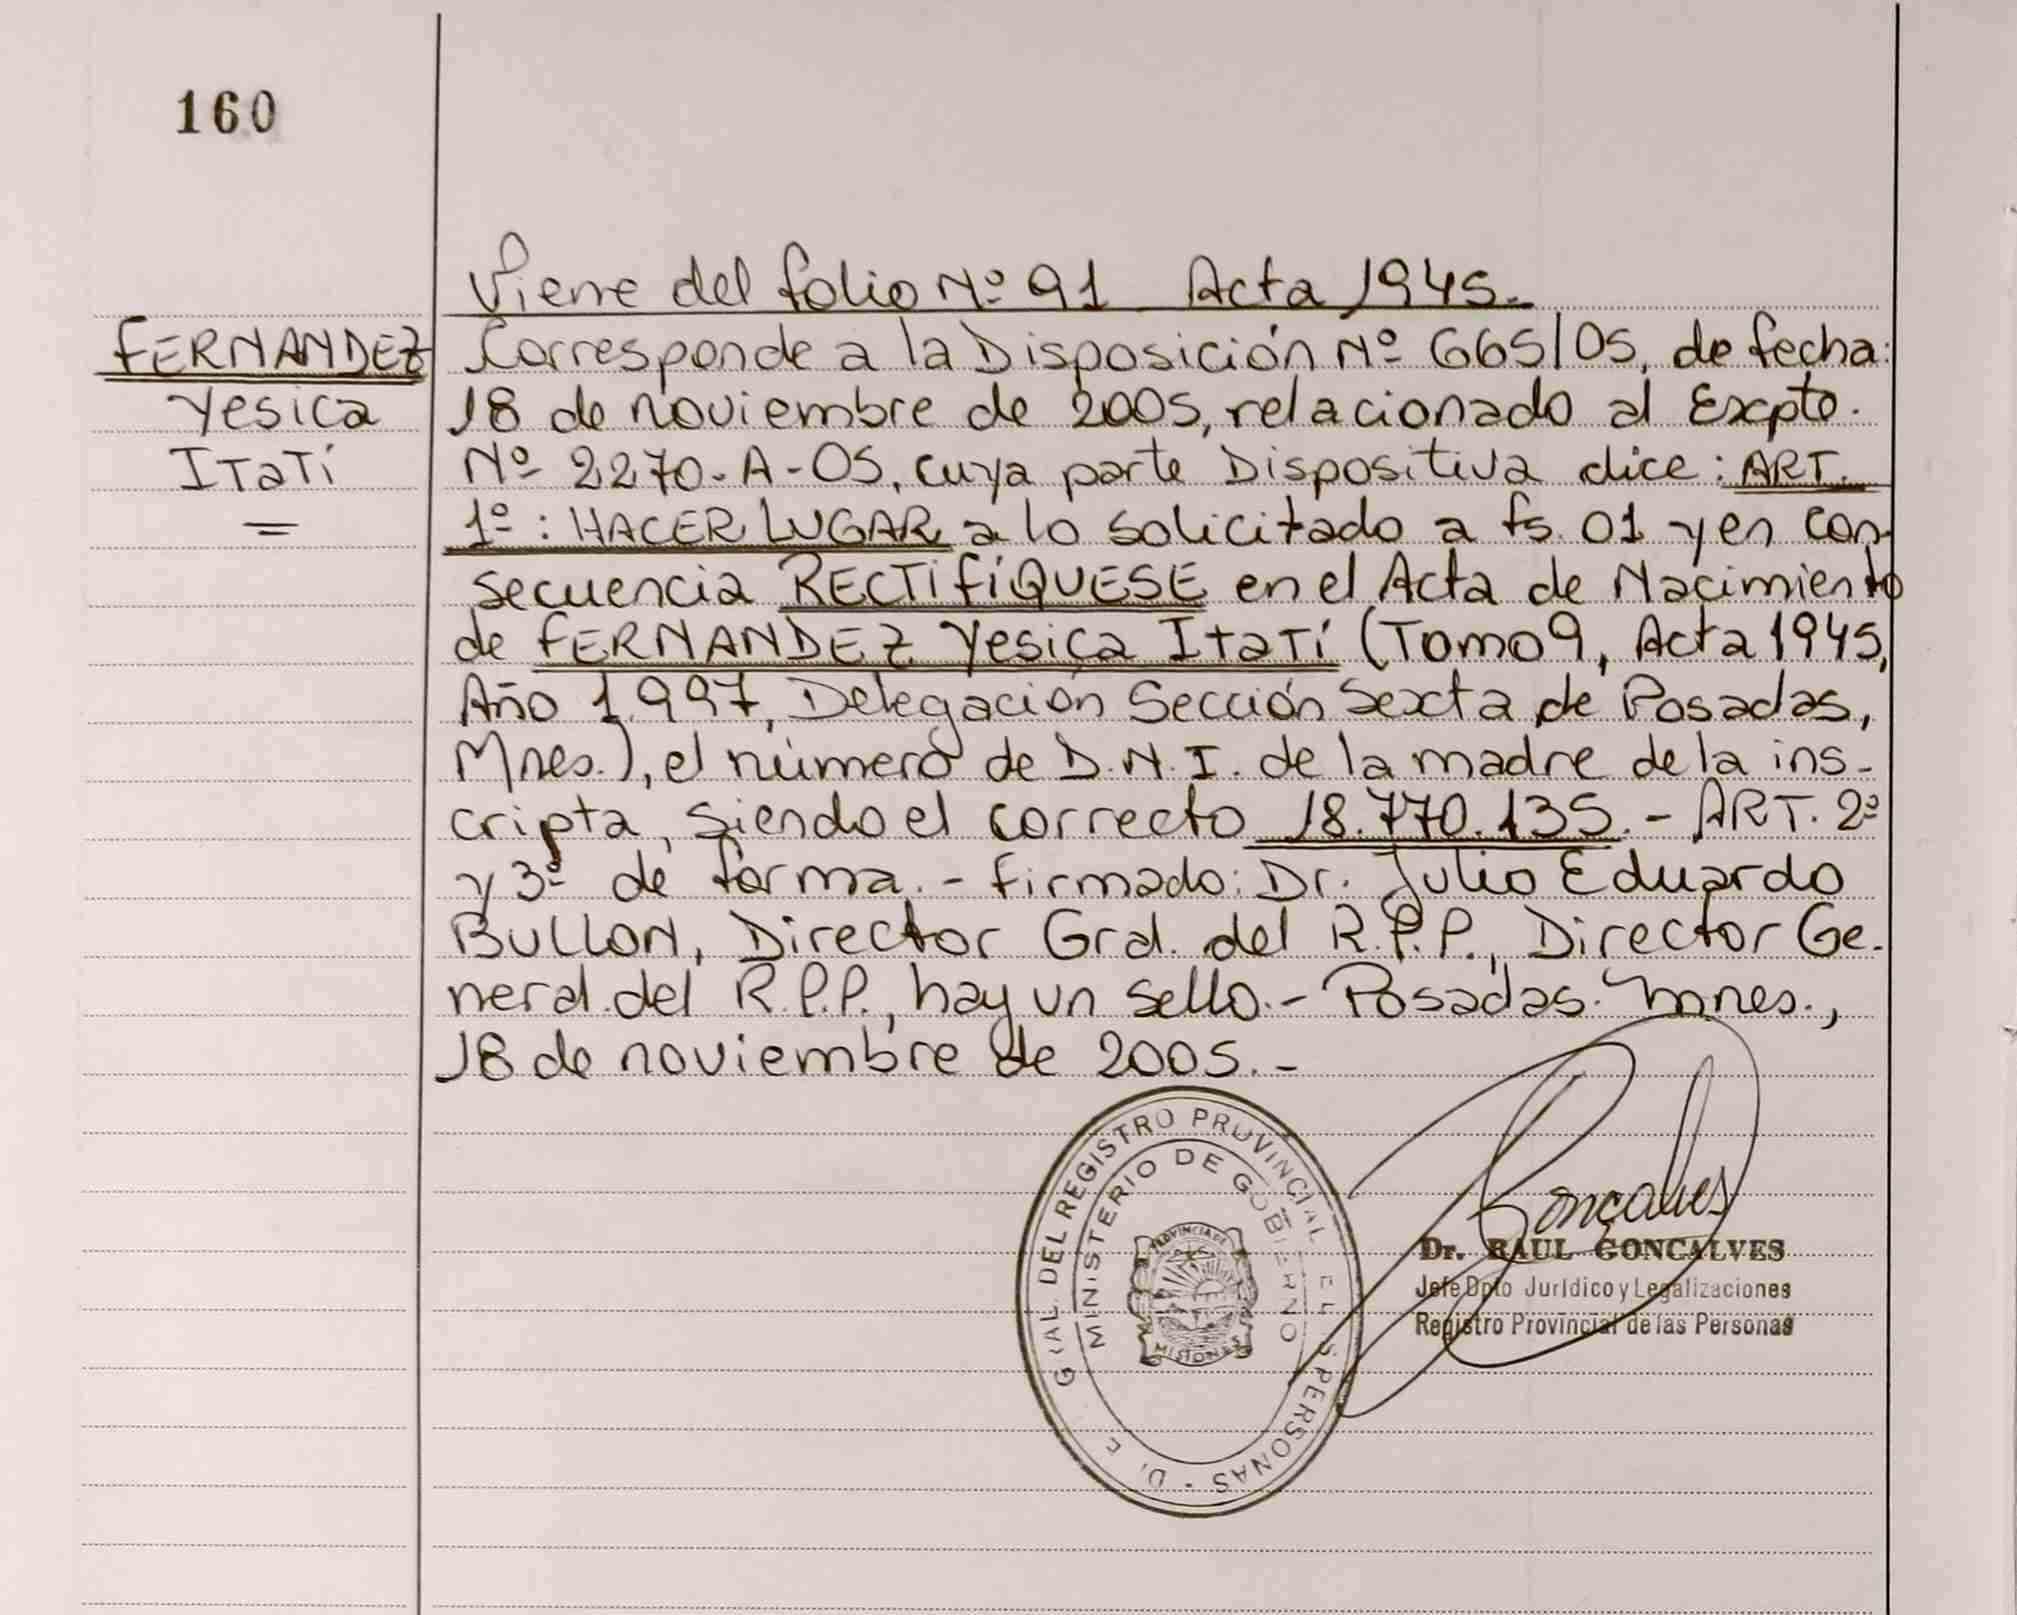 160
Viene del folio Nº 91 Acta 1945.
FERNANDEZ
Yesica
Itatí
=
Corresponde a la Disposición Nº 665/05, de fecha:
18 de noviembre de 2005, relacionado al Expte.
Nº 2270-A-05, cuya parte Dispositiva dice: ART.
1º: HACER LUGAR a lo solicitado a fs. 01 y en con-
secuencia RECTIFÍQUESE en el Acta de Nacimiento
de FERNANDEZ Yesica Itatí (Tomo 9, Acta 1945,
Año 1.997, Delegación Sección Sexta de Posadas,
Mnes.), el número de D.N.I. de la madre de la ins-
cripta, siendo el correcto 18.770.135.- ART. 2º
y 3º de forma.- Firmado: Dr. Julio Eduardo
BULLON, Director Gral. del R.P.P., Director Ge-
neral del R.P.P., hay un sello.- Posadas. Mnes.,
18 de noviembre de 2005.-
GRAL. DEL REGISTRO PROVINCIAL PERSONAS -
MINISTERIO DE GOBIERNO
PROVINCIA DE
MISIONES
Goncalves
Dr. RAUL GONCALVES
Jefe Dpto Jurídico y Legalizaciones
Registro Provincial de las Personas